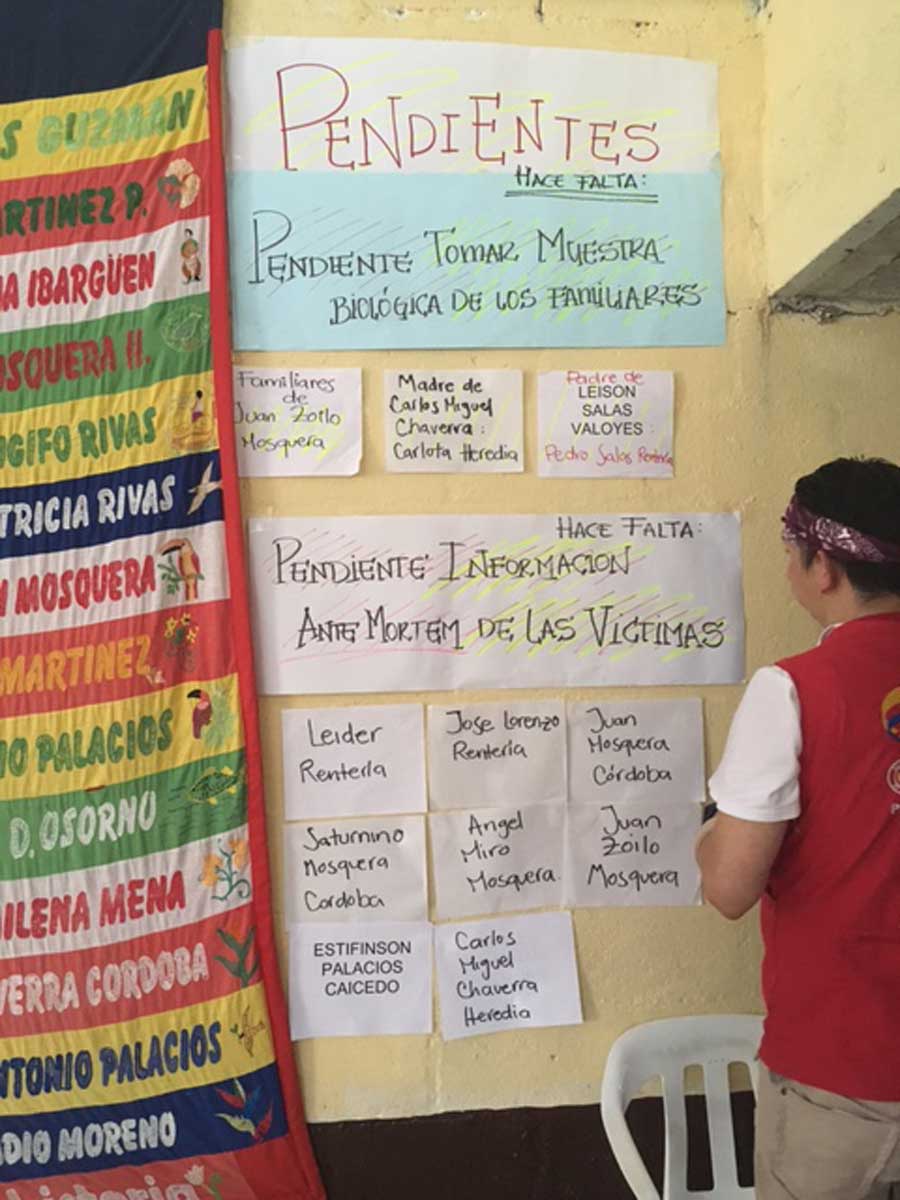 S GUZMAN
ARTINEZ P.
IA IBARGÜEN
OSQUERA H.
NGIFO RIVAS
TRICIA RIVAS
N MOSQUERA
MARTINEZ
IO PALACIOS
D. OSORNO
DILENA MENA
VERRA CORDOBA
NTONIO PALACIOS
DIO MORENO
historia
PENDIENTES
HACE FALTA:
PENDIENTE TOMAR MUESTRA
BIOLÓGICA DE LOS FAMILIARES
Familiares
de
Juan Zoilo
Mosquera
Madre de
Carlos Miguel
Chaverra:
Carlota Heredia
Padre de
LEISON
SALAS
VALOYES :
Pedro Salas Rentería
HACE FALTA:
PENDIENTE INFORMACION
ANTE MORTEM DE LAS VÍCTIMAS
Leider
Rentería
Jose Lorenzo
Rentería
Juan
Mosquera
Córdoba
Saturnino
Mosquera
Cordoba
Angel
Miro
Mosquera.
Juan
Zoilo
Mosquera
ESTIFINSON
PALACIOS
CAICEDO
Carlos
Miguel
Chaverra
Heredia